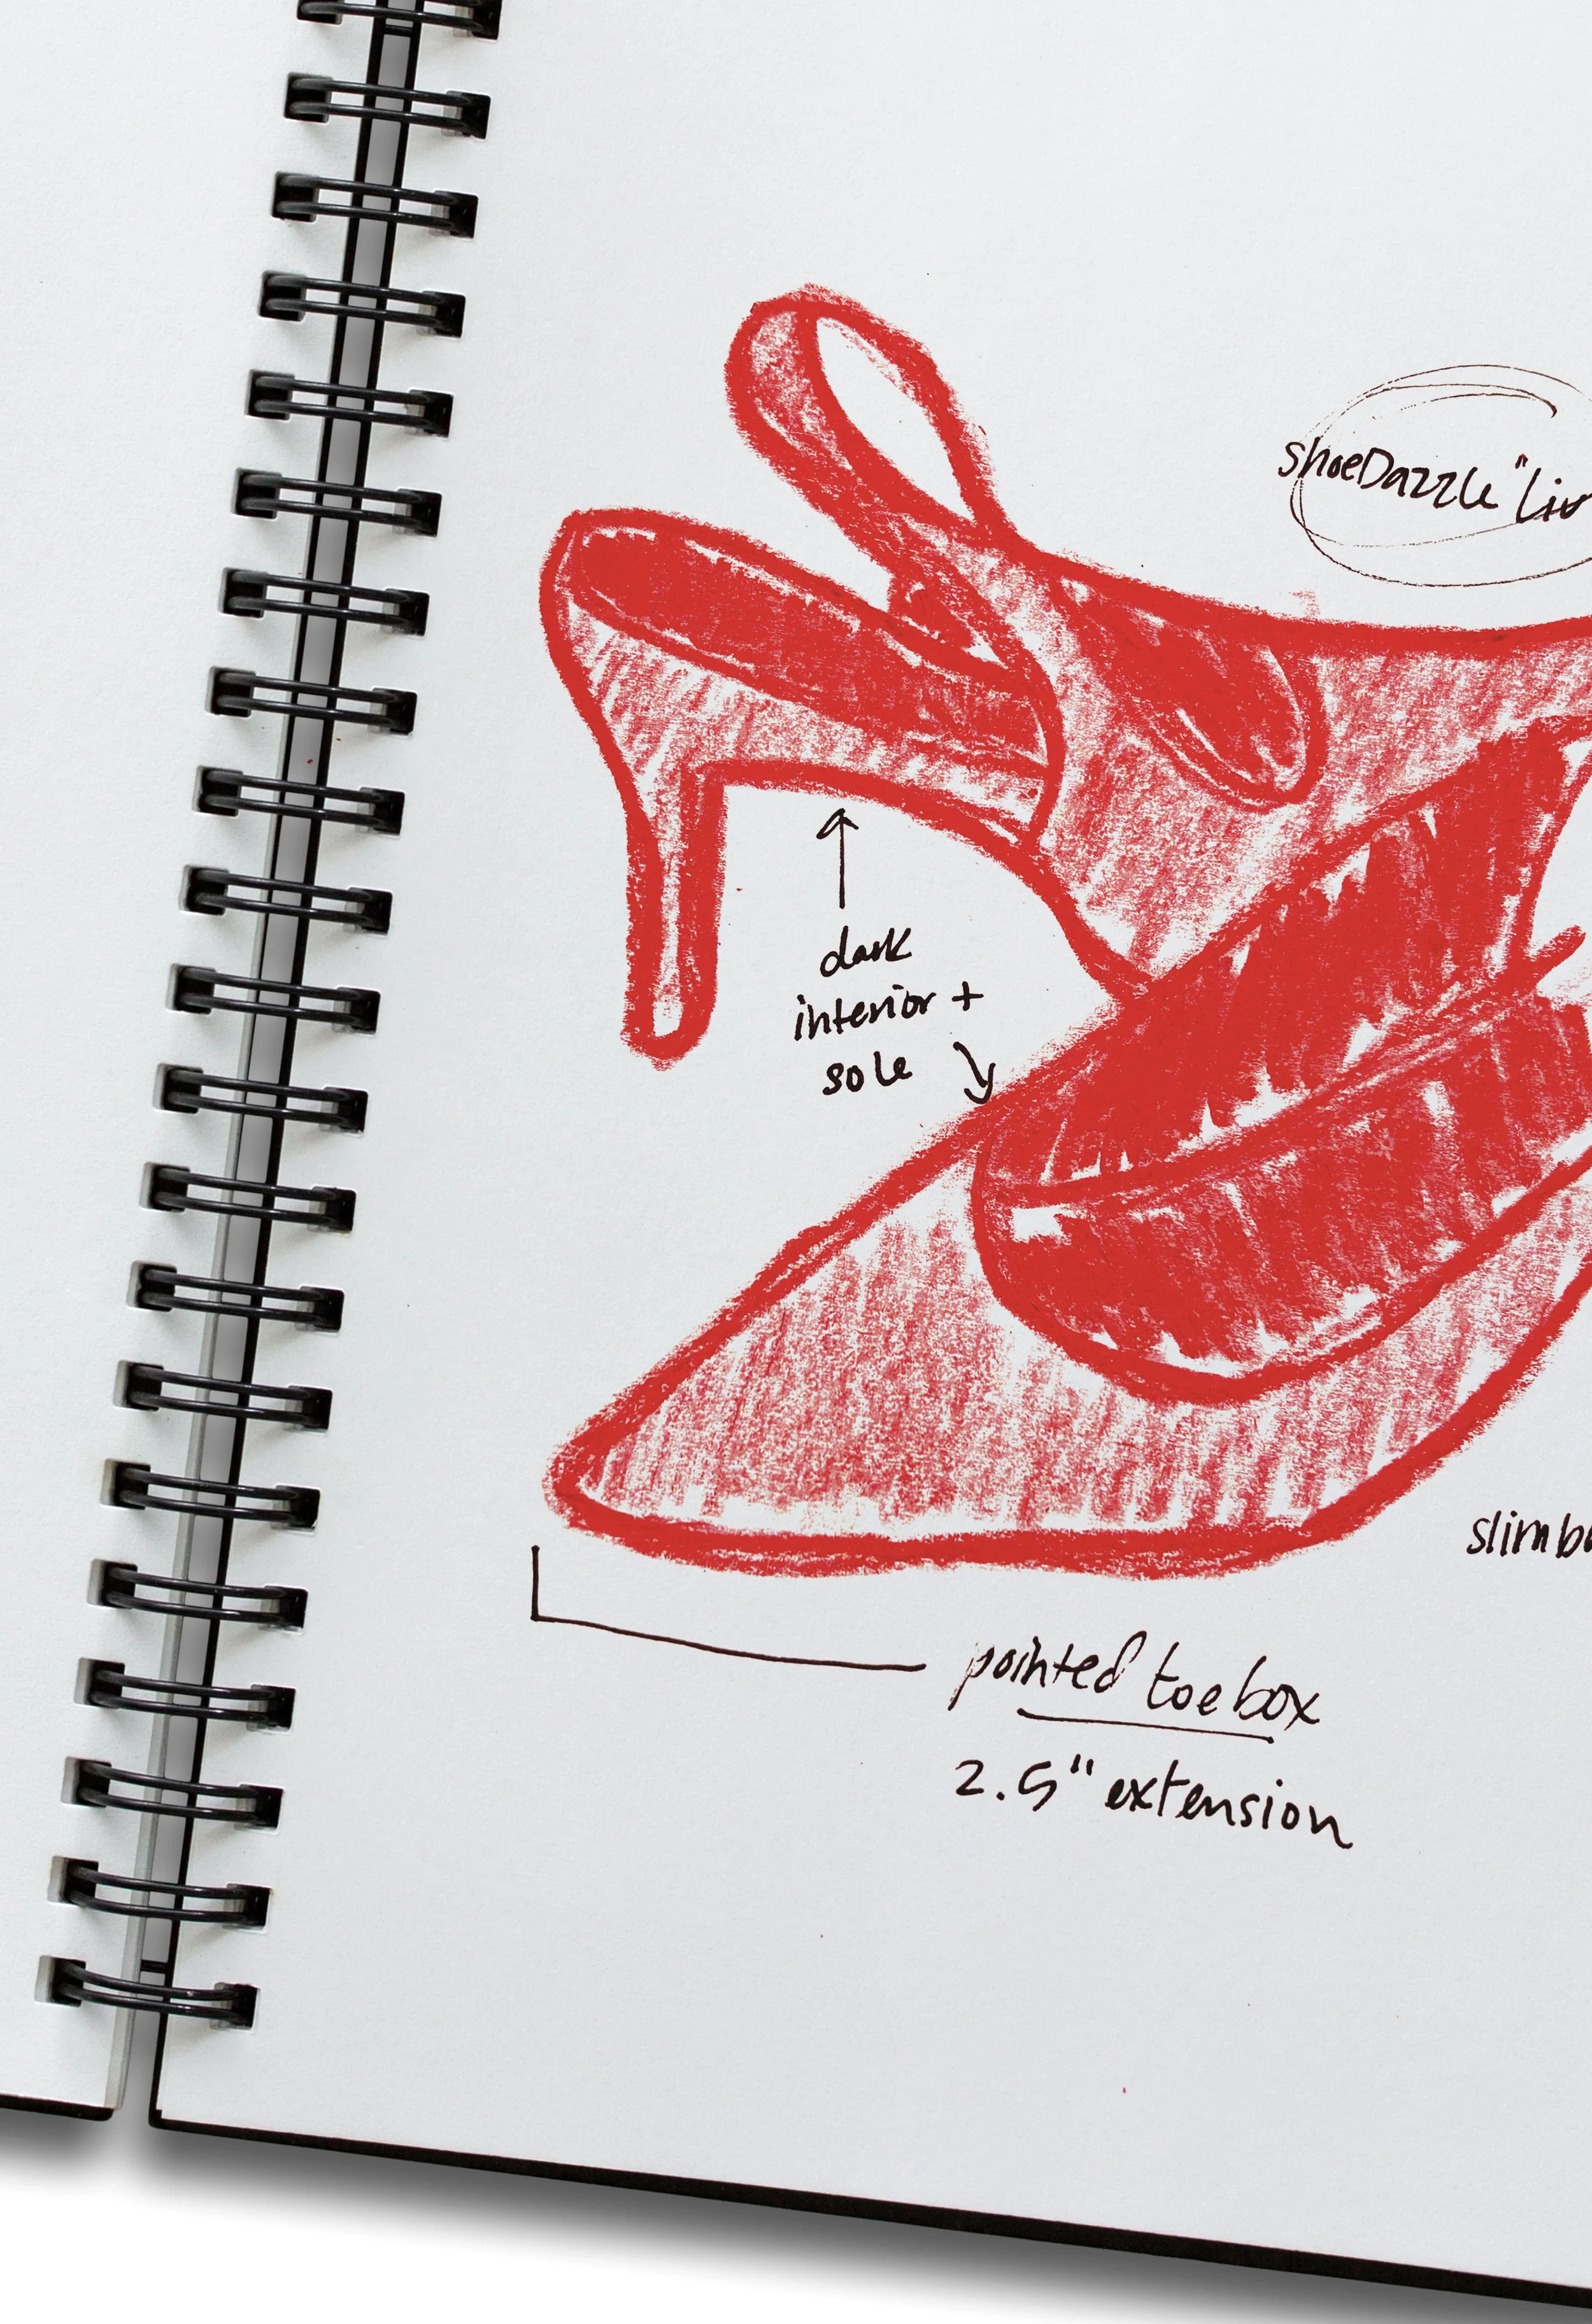 shoeDazzle "Liv
dark
interior +
sole
slim
pointed toe box
2.5" extension